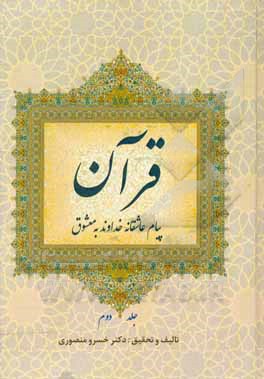 قرآن
پیام عاشقانه خداوند به معشوق
جلد دوم
تالیف و تحقیق : دکتر خسرو منصوری